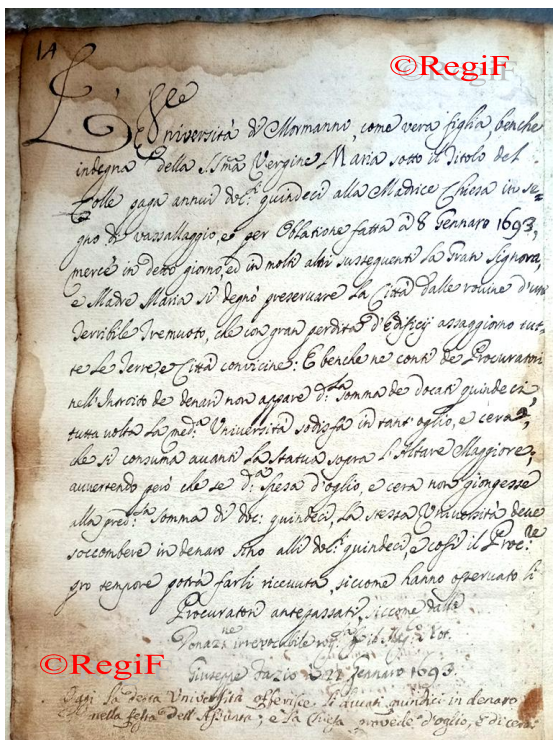 14
©RegiF
L'Ecc.
Università di Mormanni, come vera figlia benche
indegna della S.ma Vergine Maria sotto il Titolo del
Colle paga annui doc.ti quindeci alla Madrice Chiesa in se-
gno di vassallaggio, et per Oblatione fatta à 8 Gennaro 1693,
mercè in detto giorno, ed in molti altri susseguenti la Gran Signora,
e Madre Maria si degnò preservare la Città dalle rouine d'un
Terribile Tremuoto, che con gran perdita d'Edificij assaggiorno tut-
te le Terre, e Città convicine: E benche ne conti de Procuratori
nell'Introito de denari non appare d.ta somma de docati quindeci,
tutta volta la med.a Università sodisfa in tant'oglio, e cera,
che si consuma avanti la Statua sopra l'Altare Maggiore;
avvertendo però che se d.a spesa d'oglio, e cera non giongesse
alla pred.ta somma di doc.ti quindeci, la stessa Università deve
soccombere in denaro sino alli doc.ti quindeci, e così il Proc.re
pro tempore potrà farli ricevuta, siccome hanno osservato li
Procuratori antepassati, siccome dalle
Donaz.ne irrevocabile Not.
Giuseppe Fazio 22 Gennaro 1693.
©RegiF
Oggi la Università offerisce li ducati quindici in denaro
nella dell'Assunta; e la Chiesa provede d'oglio, e di cera